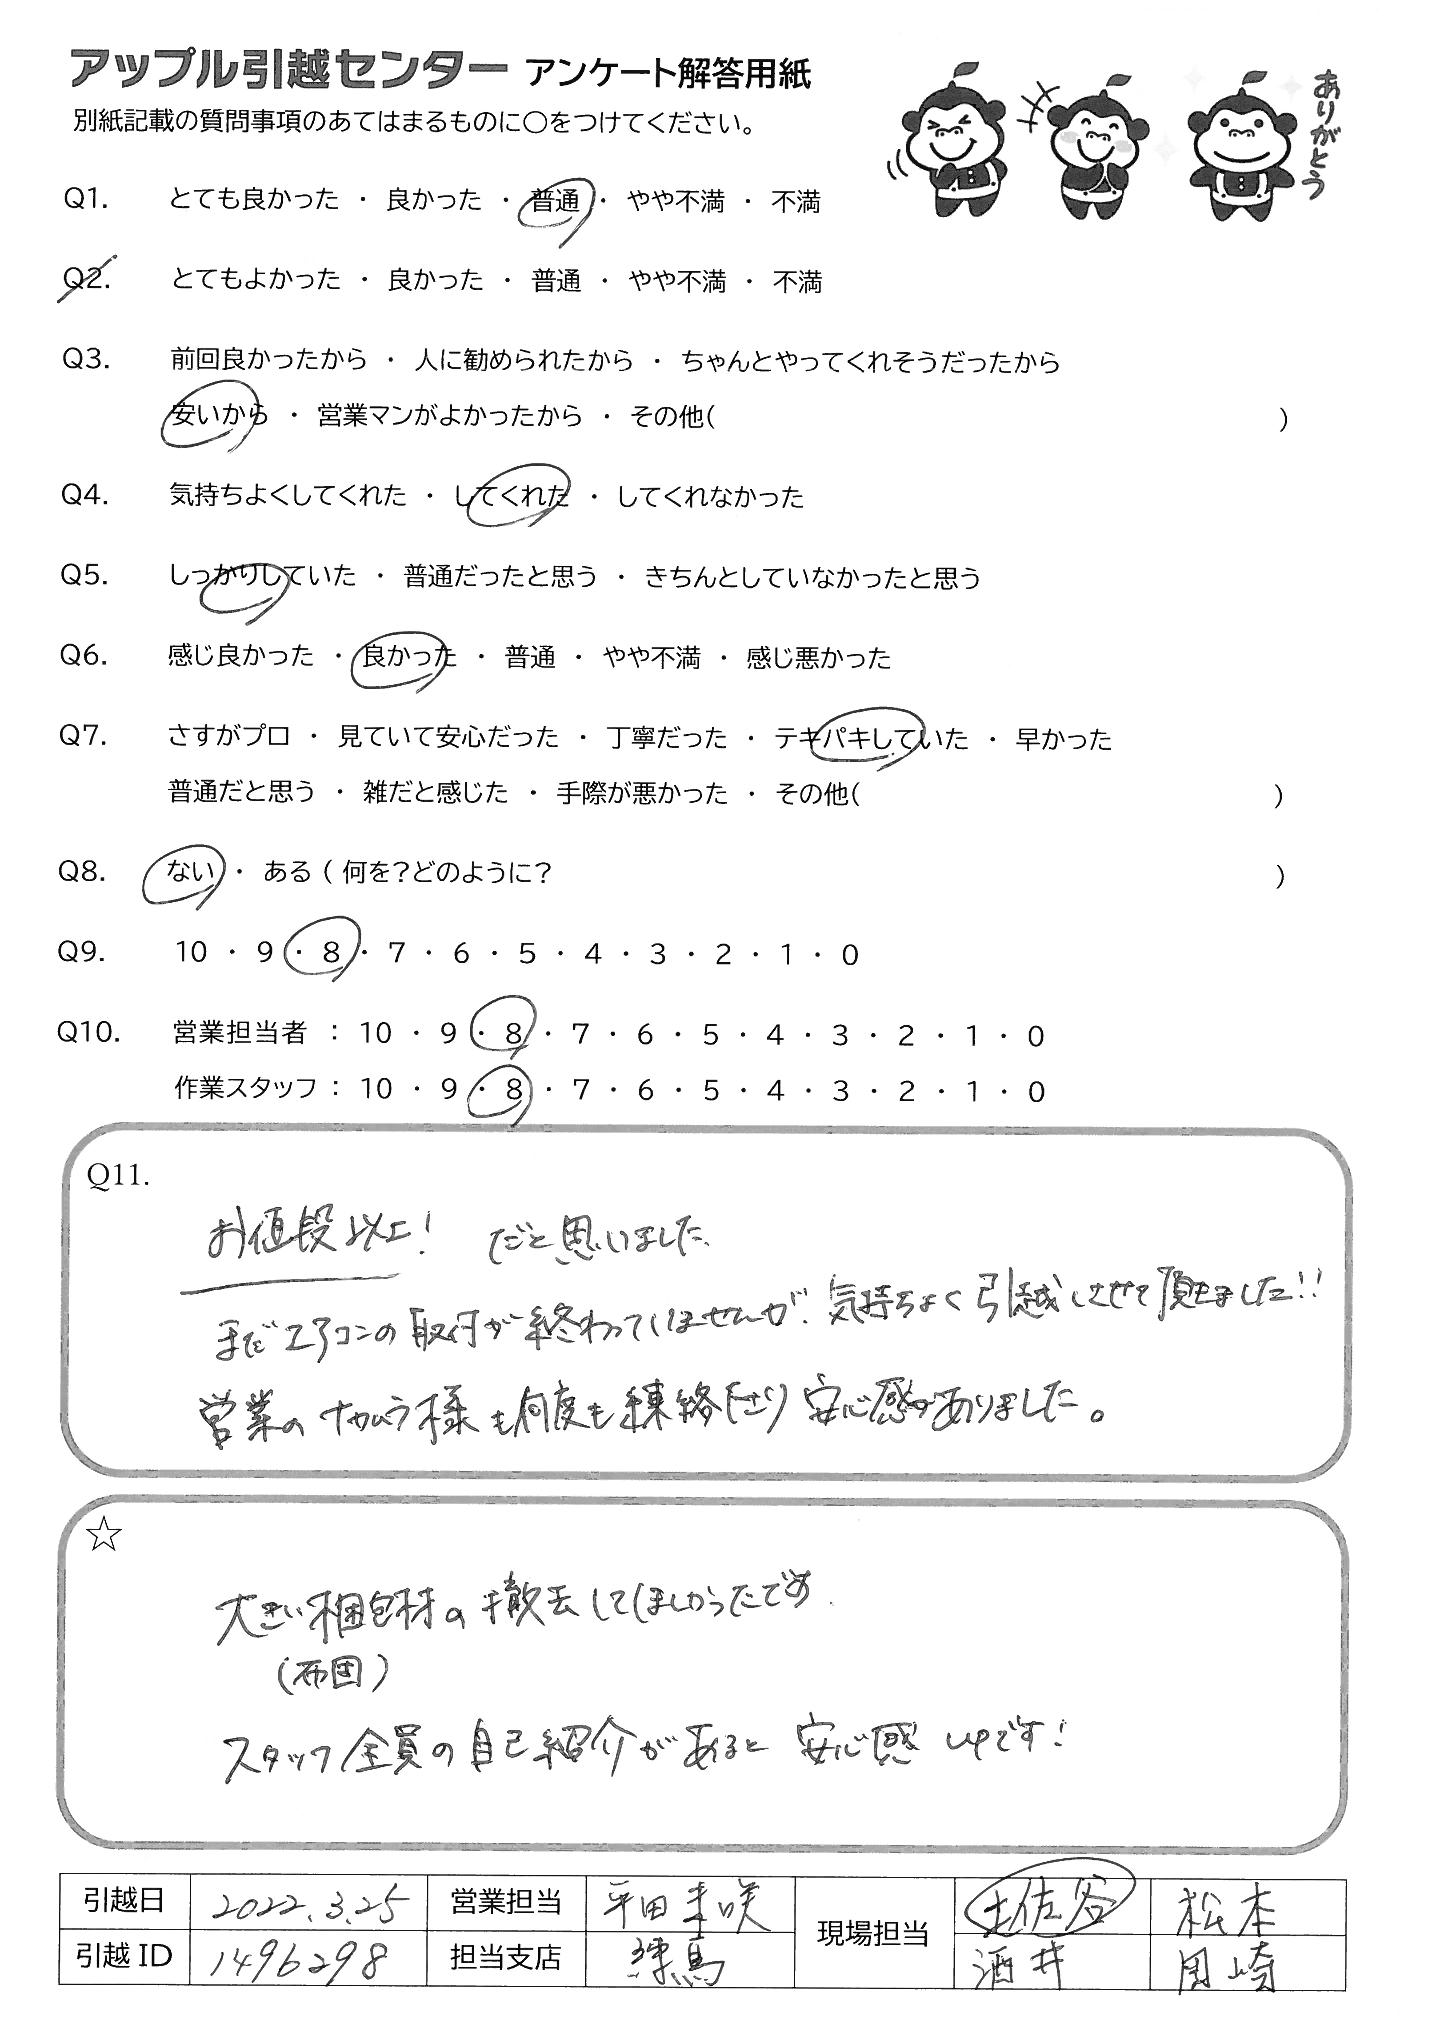 アップル引越センター アンケート解答用紙
別紙記載の質問事項のあてはまるものに○をつけてください。
ありがとう
Q1. とても良かった ・ 良かった ・ 普通 ・ やや不満 ・ 不満
Q2. とてもよかった ・ 良かった ・ 普通 ・ やや不満 ・ 不満
Q3. 前回良かったから ・ 人に勧められたから ・ ちゃんとやってくれそうだったから
安いから ・ 営業マンがよかったから ・ その他( )
Q4. 気持ちよくしてくれた ・ してくれた ・ してくれなかった
Q5. しっかりしていた ・ 普通だったと思う ・ きちんとしていなかったと思う
Q6. 感じ良かった ・ 良かった ・ 普通 ・ やや不満 ・ 感じ悪かった
Q7. さすがプロ ・ 見ていて安心だった ・ 丁寧だった ・ テキパキしていた ・ 早かった
普通だと思う ・ 雑だと感じた ・ 手際が悪かった ・ その他( )
Q8. ない ・ ある ( 何を?どのように? )
Q9. 10 ・ 9 ・ 8 ・ 7 ・ 6 ・ 5 ・ 4 ・ 3 ・ 2 ・ 1 ・ 0
Q10. 営業担当者 : 10 ・ 9 ・ 8 ・ 7 ・ 6 ・ 5 ・ 4 ・ 3 ・ 2 ・ 1 ・ 0
作業スタッフ : 10 ・ 9 ・ 8 ・ 7 ・ 6 ・ 5 ・ 4 ・ 3 ・ 2 ・ 1 ・ 0
Q11.
お値段以上! だと思いました、
まだエアコンの取付が終わっていませんが、気持ちよく引越しさせて頂きました!!
営業の 様も何度も練絡下さり 安心感がありました。
☆
大きい梱包材の撤去してほしかったです.
(布団)
スタッフ全員の自己紹介があると 安心感UPです!
引越日 2022.3.25 営業担当 平田圭咲 現場担当 土佐谷 松本
引越ID 1496298 担当支店 練馬 酒井 岡崎